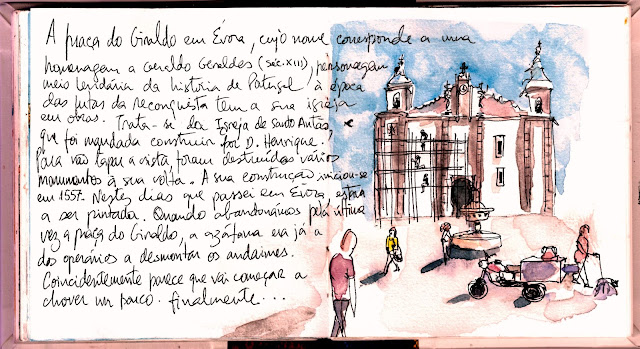 A praça do Giraldo em Évora, cujo nome corresponde a uma
homenagem a Geraldo Geraldes (séc. XIII), personagem
meio lendária da história de Portugal à época
das lutas da reconquista tem a sua igreja
em obras. Trata-se da Igreja de Santo Antão,
que foi mandada construir por D. Henrique.
Para não tapar a vista foram destruídos vários
monumentos à sua volta. A sua construção iniciou-se
em 1557. Nestes dias que passei em Évora, estava
a ser pintada. Quando abandonámos pela última
vez a praça do Giraldo, a azáfama era já a
dos operários a desmontar os andaimes.
Coincidentemente parece que vai começar a
chover um pouco. Finalmente...